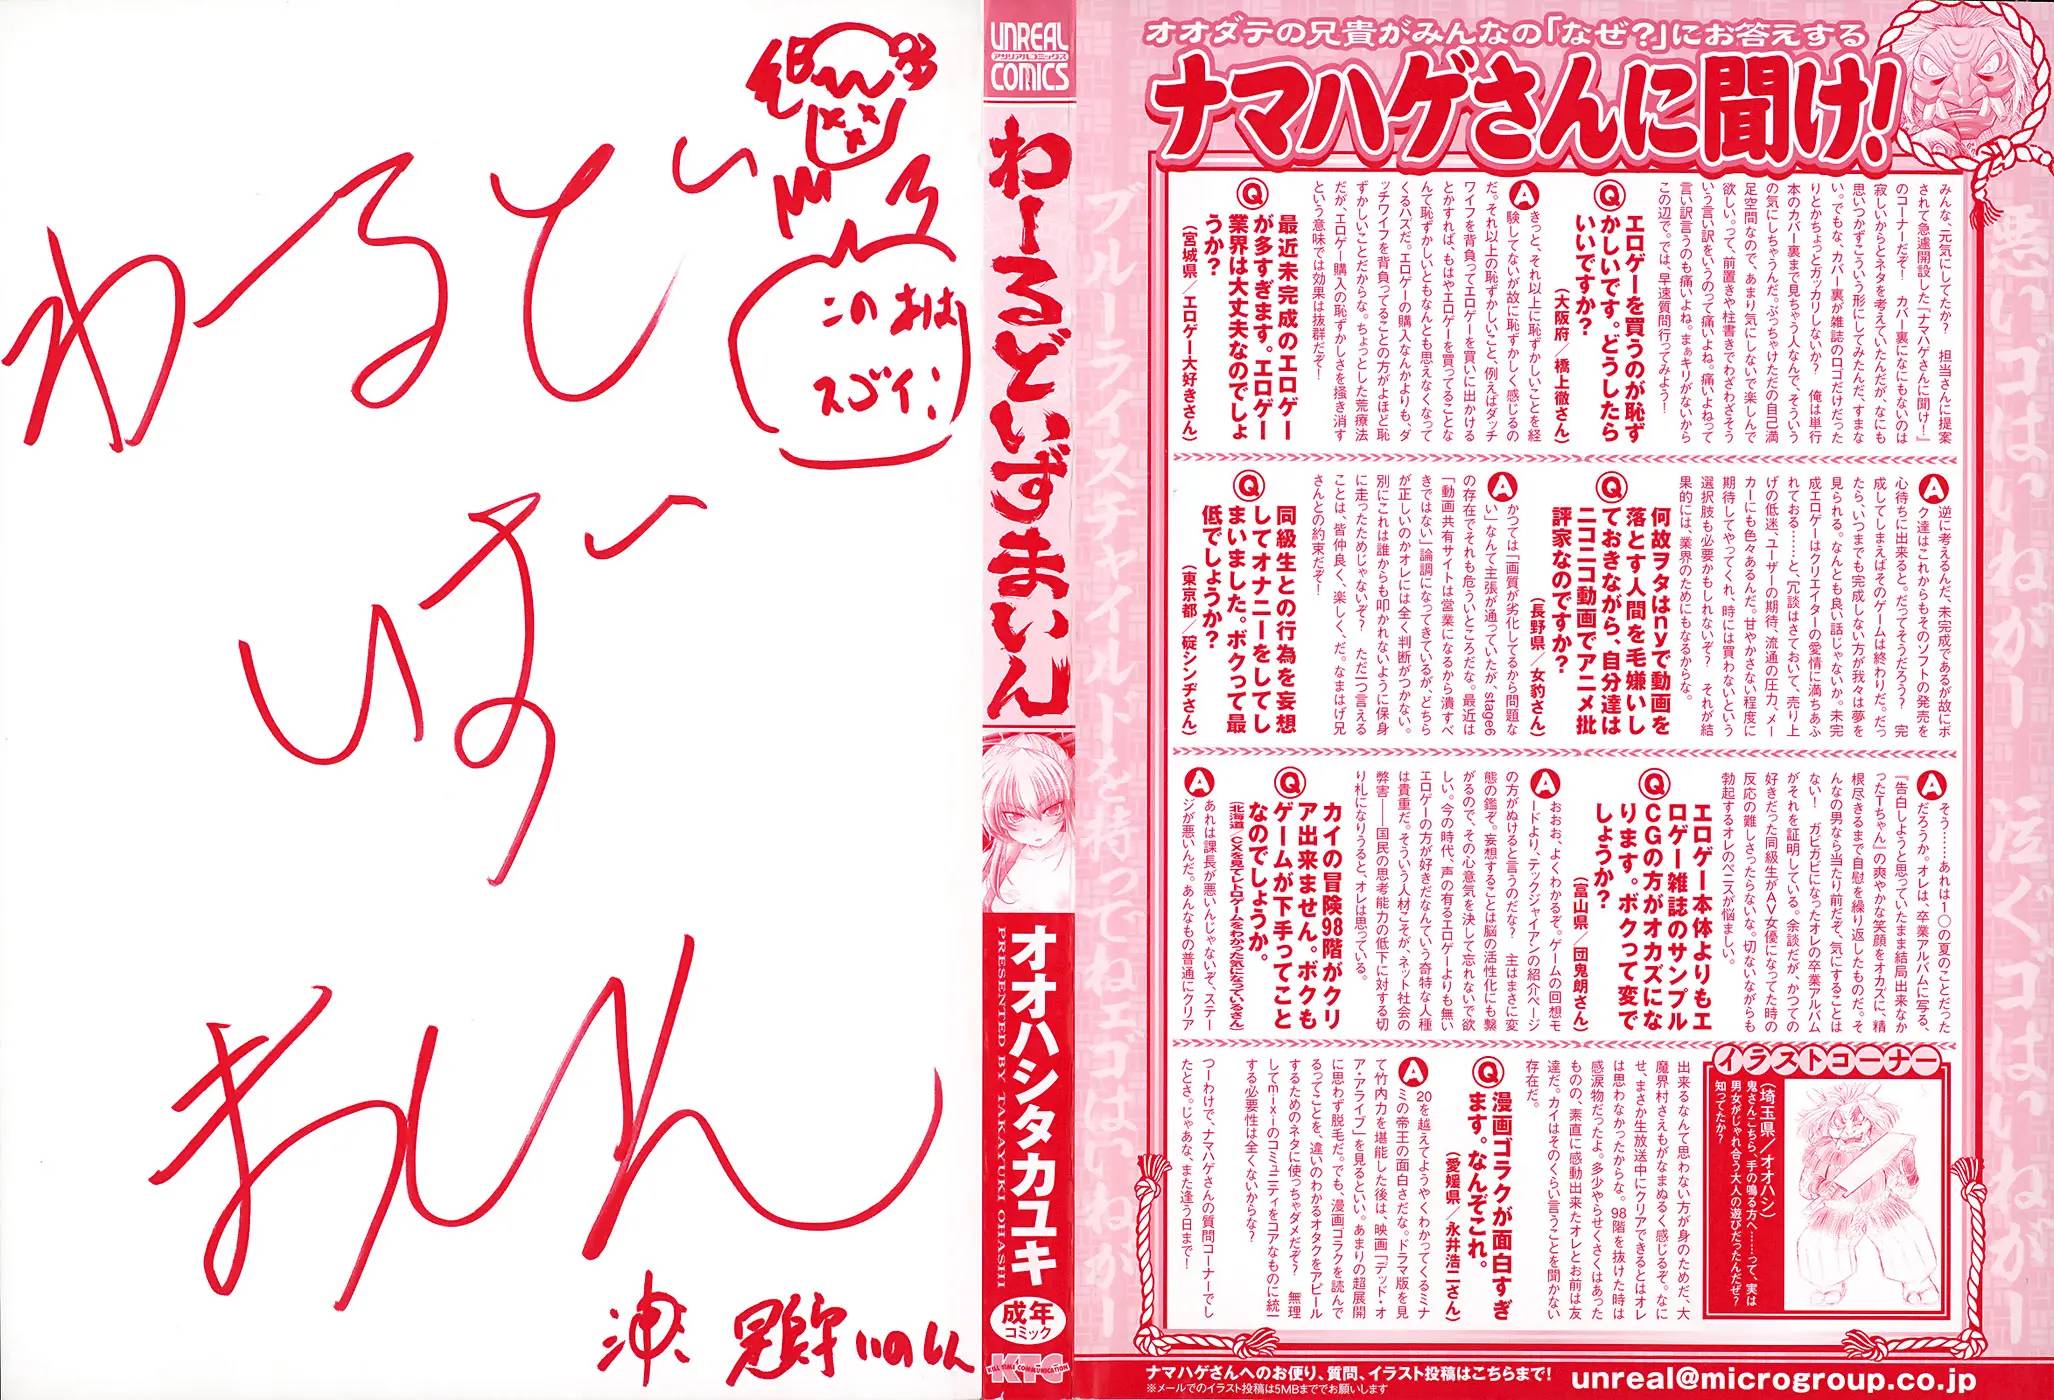 オオダテの兄貴がみんなの「なぜ?」にお答えする
ナマハゲさんに聞け!
みんな、元気にしてたか? 担当さんに提案
されて急遽開設した「ナマハゲさんに聞け!」
のコーナーだぞ! カバー裏になにもないのは
寂しいからとネタを考えていたんだが、なにも
思いつかずこういう形にしてみたんだ、すまな
い。でもな、カバー裏が雑誌のロゴだけだった
りとかちょっとガッカリしないか? 俺は単行
本のカバー裏まで見ちゃう人なんで、そういう
の気にしちゃうんだ。ぶっちゃけただの自己満
足空間なので、あまり気にしないで楽しんで
欲しい。って、前置きや柱書きでわざわざそう
いう言い訳をいうのって痛いよね。痛いよねって
言い訳言うのも痛いよね。まぁキリがないから
この辺で。では、早速質問行ってみよう!
Q エロゲーを買うのが恥ず
かしいです。どうしたら
いいですか?
(大阪府/橋上徹さん)
A きっと、それ以上に恥ずかしいことを経
験してないが故に恥ずかしく感じるの
だ。それ以上の恥ずかしいこと、例えばダッチ
ワイフを背負ってエロゲーを買いに出かける
とかすれば、もはやエロゲーを買ってることな
んて恥ずかしいともなんとも思えなくなって
くるハズだ。エロゲーの購入なんかよりも、ダ
ッチワイフを背負ってることの方がよほど恥
ずかしいことだからな。ちょっとした荒療法
だが、エロゲー購入の恥ずかしさを掻き消す
という意味では効果は抜群だぞ!
Q 最近未完成のエロゲー
が多すぎます。エロゲー
業界は大丈夫なのでしょ
うか?
(宮城県/エロゲー大好きさん)
A 逆に考えるんだ、未完成であるが故にボ
ク達はこれからもそのソフトの発売を
心待ちに出来ると。だってそうだろう? 完
成してしまえばそのゲームは終わりだ。だっ
たら、いつまでも完成しない方が我々は夢を
見られる。なんとも良い話じゃないか。未完
成エロゲーはクリエイターの愛情に満ちあふ
れておる……と、冗談はさておいて、売り上
げの低迷、ユーザーの期待、流通の圧力、メー
カーにも色々あるんだ。甘やかさない程度に
期待してやってくれ、時には買わないという
選択肢も必要かもしれないぞ? それが結
果的には、業界のためにもなるからな。
Q 何故ヲタはnyで動画を
落とす人間を毛嫌いし
ておきながら、自分達は
ニコニコ動画でアニメ批
評家なのですか?
(長野県/女豹さん)
A かつては「画質が劣化してるから問題な
い」なんて主張が通っていたが、stage6
の存在でそれも危ういところだな。最近は
「動画共有サイトは営業になるから潰すべ
きではない」論調になってきているが、どちら
が正しいのかオレには全く判断がつかない。
別にこれは誰からも叩かれないように保身
に走ったためじゃないぞ? ただ一つ言える
ことは、皆仲良く、楽しく、だ。なまはげ兄
さんとの約束だぞ!
Q 同級生との行為を妄想
してオナニーをしてし
まいました。ボクって最
低でしょうか?
(東京都/碇シンヂさん)
A そう……あれは1○の夏のことだった
だろうか。オレは、卒業アルバムに写る、
『告白しようと思っていたまま結局出来なか
ったTちゃん』の爽やかな笑顔をオカズに、精
根尽きるまで自慰を繰り返したものだ。そ
んなの男なら当たり前だぞ、気にすることは
ない! ガビガビになったオレの卒業アルバム
がそれを証明している。余談だが、かつての
好きだった同級生がAV女優になってた時の
反応の難しさったらないな。切ないながらも
勃起するオレのペニスが悩ましい。
Q エロゲー本体よりもエ
ロゲー雑誌のサンプル
CGの方がオカズにな
ります。ボクって変で
しょうか?
(富山県/団鬼朗さん)
A おおお、よくわかるぞ。ゲームの回想モ
ードより、テックジャイアンの紹介ページ
の方がぬけると言うのだな? 主はまさに変
態の鑑ぞ。妄想することは脳の活性化にも繋
がるので、その心意気を決して忘れないで欲
しい。今の時代、声の有るエロゲーよりも無い
エロゲーの方が好きだなんていう奇特な人種
は貴重だ。そういう人材こそが、ネット社会の
弊害――国民の思考能力の低下に対する切
り札になりうると、オレは思っている。
Q カイの冒険98階がクリ
ア出来ません。ボクも
ゲームが下手ってこと
なのでしょうか。
(北海道/CXを見てレトロゲームをわかった気になっているさん)
A あれは課長が悪いんじゃないぞ、ステー
ジが悪いんだ。あんなもの普通にクリア
出来るなんて思わない方が身のためだ、大
魔界村さえもがなまぬるく感じるぞ。なに
せ、まさか生放送中にクリアできるとはオレ
は思わなかったからな。98階を抜けた時は
感涙物だったよ。多少やらせくさくはあった
ものの、素直に感動出来たオレとお前は友
達だ。カイはそのくらい言うことを聞かない
存在だ。
Q 漫画ゴラクが面白すぎ
ます。なんぞこれ。
(愛媛県/永井浩二さん)
A 20を越えてようやくわかってくるミナ
ミの帝王の面白さだな。ドラマ版を見
て竹内力を堪能した後は、映画「デッド・オ
ア・アライブ」を見るといい。あまりの超展開
に思わず脱毛だ。でも、漫画ゴラクを読んで
るってことを、違いのわかるオタクをアピール
するためのネタに使っちゃダメだぞ? 無理
してmixiのコミュニティをコアなものに統一
する必要性は全くないからな?
つーわけで、ナマハゲさんの質問コーナーでし
たとさ。じゃあな、また逢う日まで!
イラストコーナー
(埼玉県/オオハシ)
鬼さんこちら、手の鳴る方へ……って、実は
男女がじゃれ合う大人の遊びだったんだぜ?
知ってたか?
ナマハゲさんへのお便り、質問、イラスト投稿はこちらまで!
※メールでのイラスト投稿は5MBまででお願いします
unreal@microgroup.co.jp
悪いゴはいねがー 泣くゴはいねがー
ブルーライスチャイルドを持ってねエゴはいねがー
UNREAL
アンリアルコミックス
COMICS
わーるどいずまいん
オオハシタカユキ
PRESENTED BY TAKAYUKI OHASHI
成年
コミック
KTC
KILL TIME COMMUNICATION
わーるど
いず
まいん
このあとは
スゴイ!